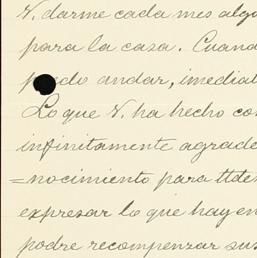 V. darme cada mes algo
para la casa. Cuand
puedo andar, imediat
Lo que V. ha hecho con
infinitamente agrade
=nocimiento para Uds
expresar lo que hay en
podre recompenzar sus